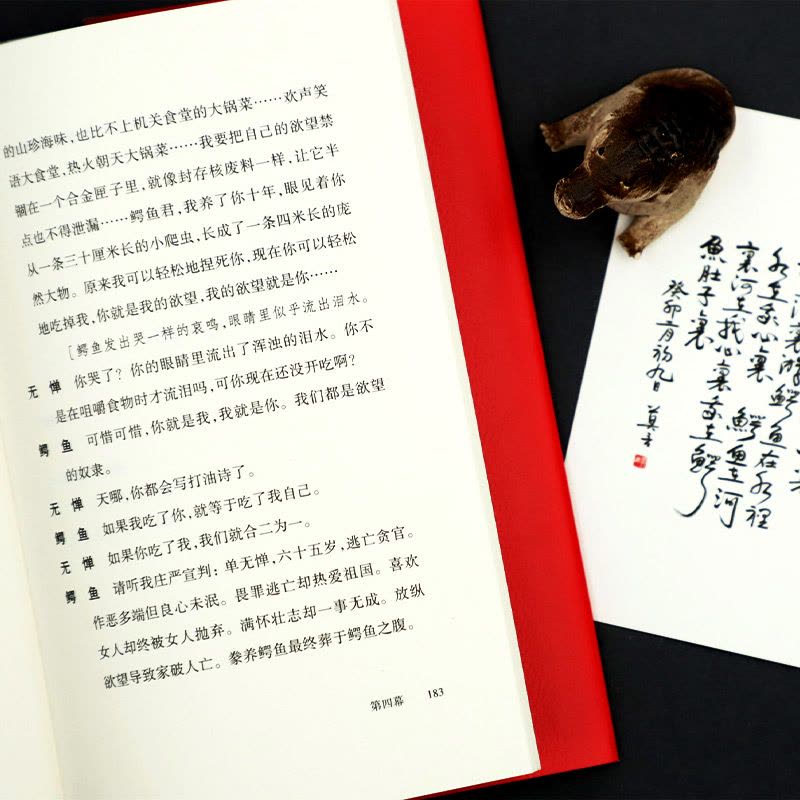 的山珍海味，也比不上机关食堂的大锅菜……欢声笑
语大食堂，热火朝天大锅菜……我要把自己的欲望禁
锢在一个合金匣子里，就像封存核废料一样，让它半
点也不得泄漏……鳄鱼君，我养了你十年，眼见着你
从一条三十厘米长的小爬虫，长成了一条四米长的庞
然大物。原来我可以轻松地捏死你，现在你可以轻松
地吃掉我，你就是我的欲望，我的欲望就是你……
［鳄鱼发出哭一样的哀鸣，眼睛里似乎流出泪水。
无惮 你哭了？你的眼睛里流出了浑浊的泪水。你不
是在咀嚼食物时才流泪吗，可你现在还没开吃啊？
鳄鱼 可惜可惜，你就是我，我就是你。我们都是欲望
的奴隶。
无惮 天哪，你都会写打油诗了。
鳄鱼 如果我吃了你，就等于吃了我自己。
无惮 如果你吃了我，我们就合二为一。
鳄鱼 请听我庄严宣判：单无惮，六十五岁，逃亡贪官。
作恶多端但良心未泯。畏罪逃亡却热爱祖国。喜欢
女人却终被女人抛弃。满怀壮志却一事无成。放纵
欲望导致家破人亡。豢养鳄鱼最终葬于鳄鱼之腹。
第四幕 183
鳄鱼在水裡
水在我心裏 鳄鱼在河
裏河在我心裏我在鳄
魚肚子裏
癸卯二月初九日 莫言